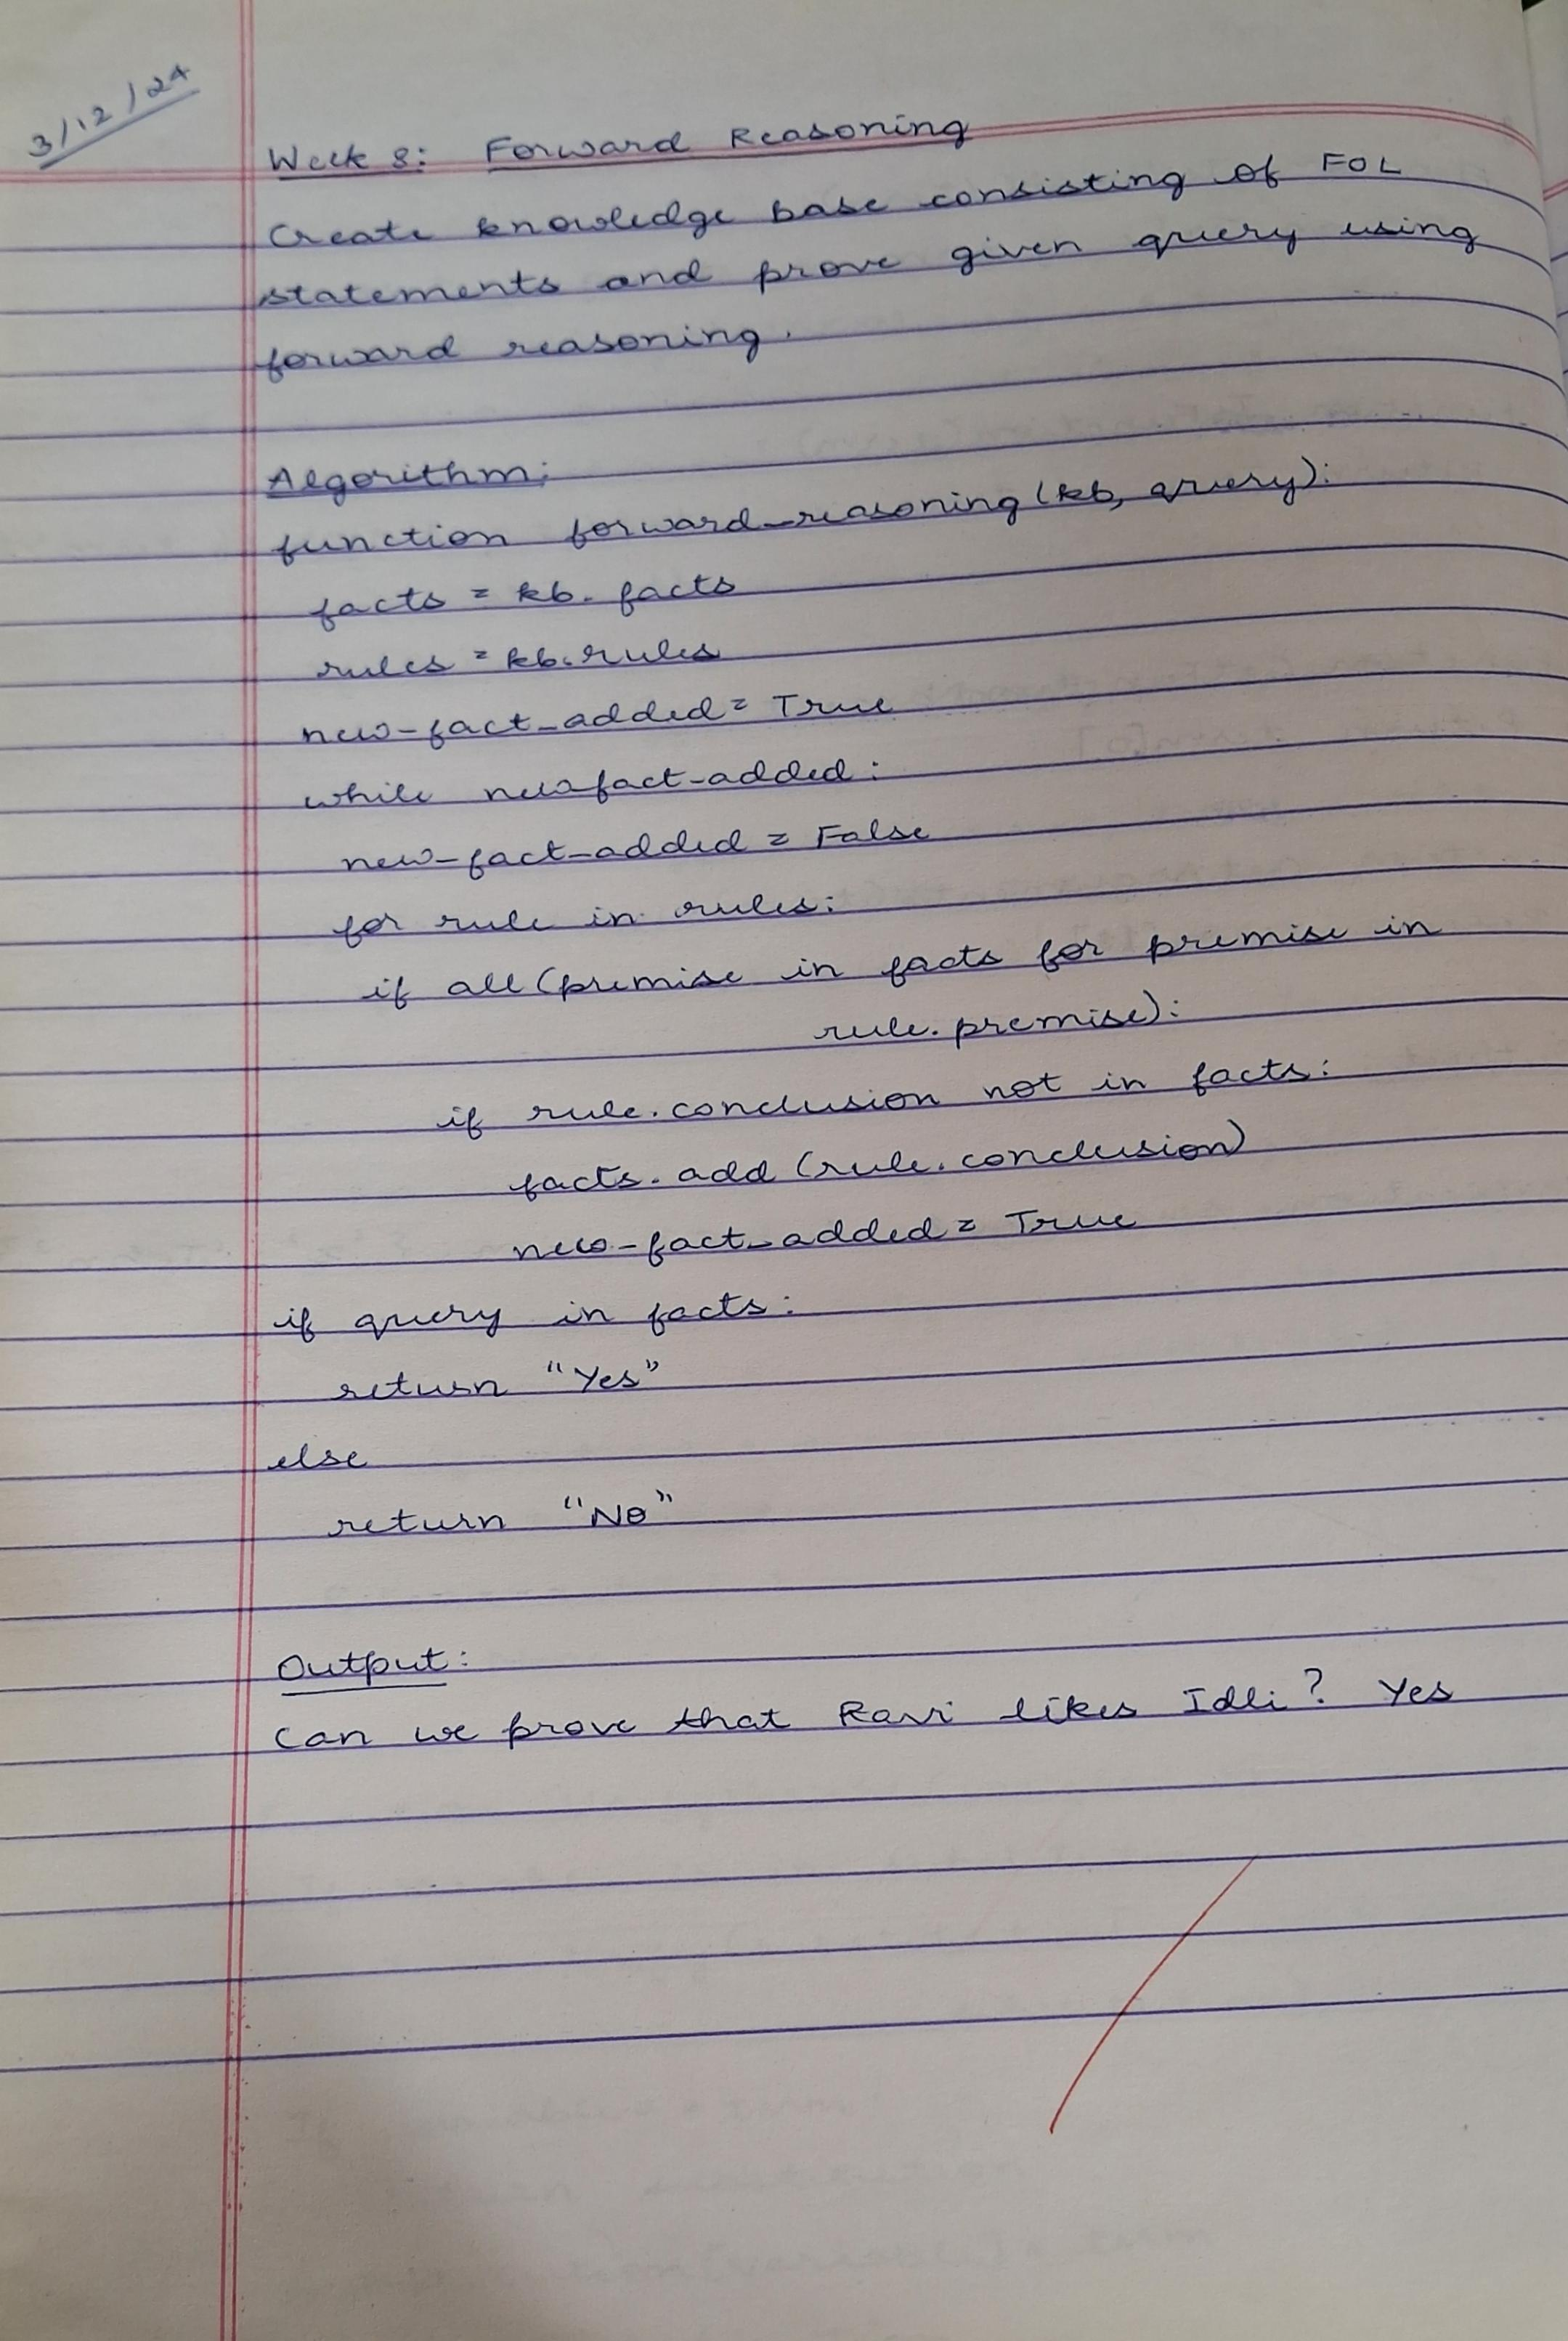 3/12/24
Week 8: Forward Reasoning
Create knowledge base consisting of FOL
statements and prove given query using
forward reasoning.
Algorithm:
function forward_reasoning(kb, query):
facts = kb.facts
rules = kb.rules
new-fact_added = True
while new fact-added:
new-fact-added = False
for rule in rules:
if all (premise in facts for premise in
rule.premise):
if rule.conclusion not in facts:
facts.add (rule.conclusion)
new-fact_added = True
if query in facts:
return "Yes"
else
return "No"
Output:
Can we prove that Ravi likes Idli? Yes